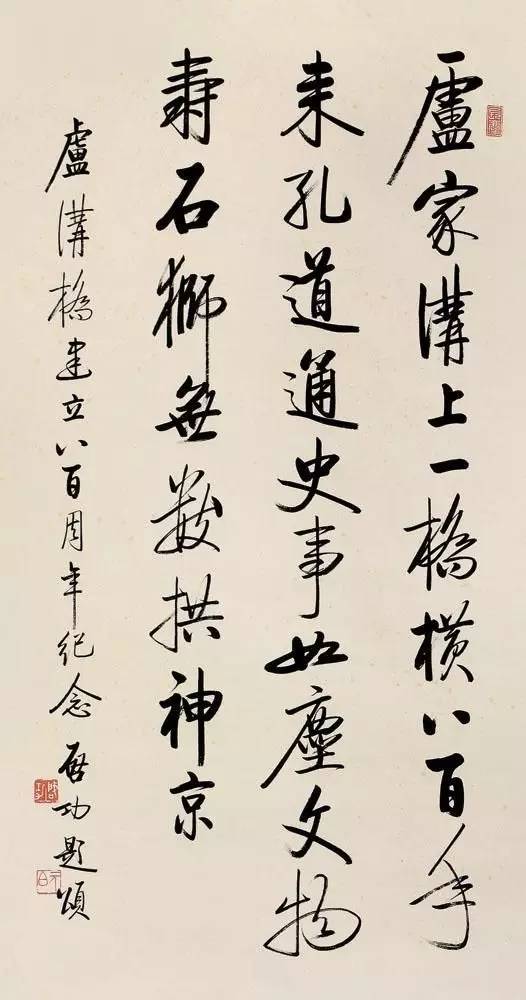 盧家溝上一橋橫八百年
来孔道通史事如塵文物
壽石獅無數拱神京
盧溝橋建立八百周年纪念 启功題頌
启功
元白